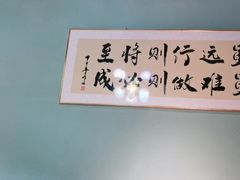 虽远行则将至
虽难做则必成